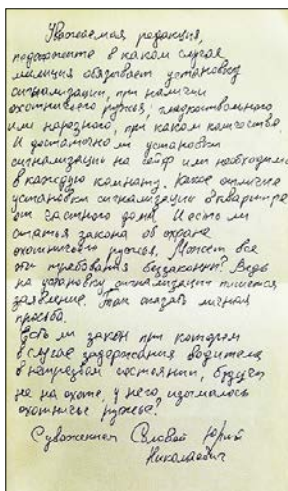 Уважаемая редакция,
подскажите в каком случая
милиция обязывает установку
сигнализации, при наличии
охотничьего ружья, гладкоствольного
или нарезного, при каком количестве.
И достаточно ли установки
сигнализации на сейф или необходимо
в каждую комнату. Какое отличие
установки сигнализации в квартире
от частного дома. И есть ли
статья закона об охране
охотничьего ружья. Может все
эти требования беззаконны? Ведь
на установку сигнализации пишется
заявление. Так сказать личная
просьба.
Есть ли закон при котором
в случае задержания водителя
в нетрезвом состоянии, будучи
не на охоте, у него изымалось
охотничье ружье?
С уважением Юрий
Николаевич